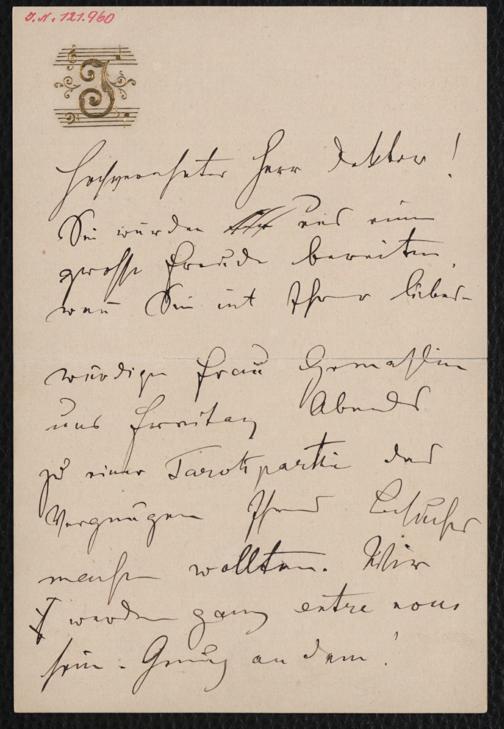 J.N. 121.960
J
Hochverehrter Herr Doktor!
Sie würden uns eine
große Freude bereiten,
wenn Sie mit Ihrer liebens-
würdigen Frau Gemahlin
uns Freitag Abends
zu einer Tarokpartie das
Vergnügen Ihres Besuches
machen wollten. Wir
werden ganz entre nous
sein. Genug an dem!